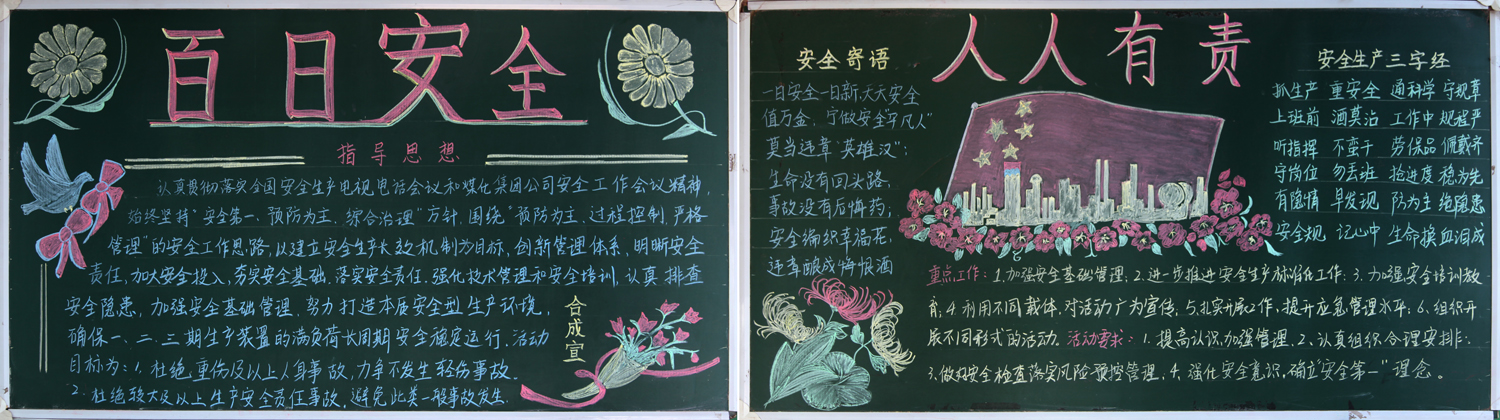 百日安全
指导思想
认真贯彻落实全国安全生产电视电话会议和煤化集团公司安全工作会议精神,
始终坚持"安全第一、预防为主、综合治理"方针,围绕"预防为主、过程控制、严格
管理"的安全工作思路,以建立安全生产长效机制为目标,创新管理体系,明晰安全
责任,加大安全投入,夯实安全基础、落实安全责任、强化技术管理和安全培训,认真排查
安全隐患,加强安全基础管理、努力打造本质安全型生产环境,
确保一、二、三期生产装置的满负荷长周期安全稳定运行、活动
目标为:1、杜绝重伤及以上人身事故,力争不发生轻伤事故。
2、杜绝较大及以上生产安全责任事故,避免此类一般事故发生.
合成宣
人人有责
安全寄语
一日安全一日新,天天安全
值万金,宁做安全"平凡人"
莫当违章"英雄汉":
生命没有回头路,
事故没有后悔药;
安全编织幸福花,
违章酿成悔恨酒
安全生产三字经
抓生产 重安全 通科学 守规章
上班前 酒莫沾 工作中 规程严
听指挥 不蛮干 劳保品 佩戴齐
守岗位 勿去班 抢进度 稳为先
有隐情 早发现 防为主 绝隐患
安全规 记心中 生命换血泪成
重点工作:1、加强安全基础管理;2、进一步推进安全生产标准化工作;3、加强安全培训教
育;4、利用不同载体,对活动广为宣传;5、扎实开展工作,提升应急管理水平;6、组织开
展不同形式的活动。活动要求:1、提高认识,加强管理、2、认真组织合理安排:
3、做好安全检查落实风险预控管理、4、强化安全意识,确立"安全第一"理念。